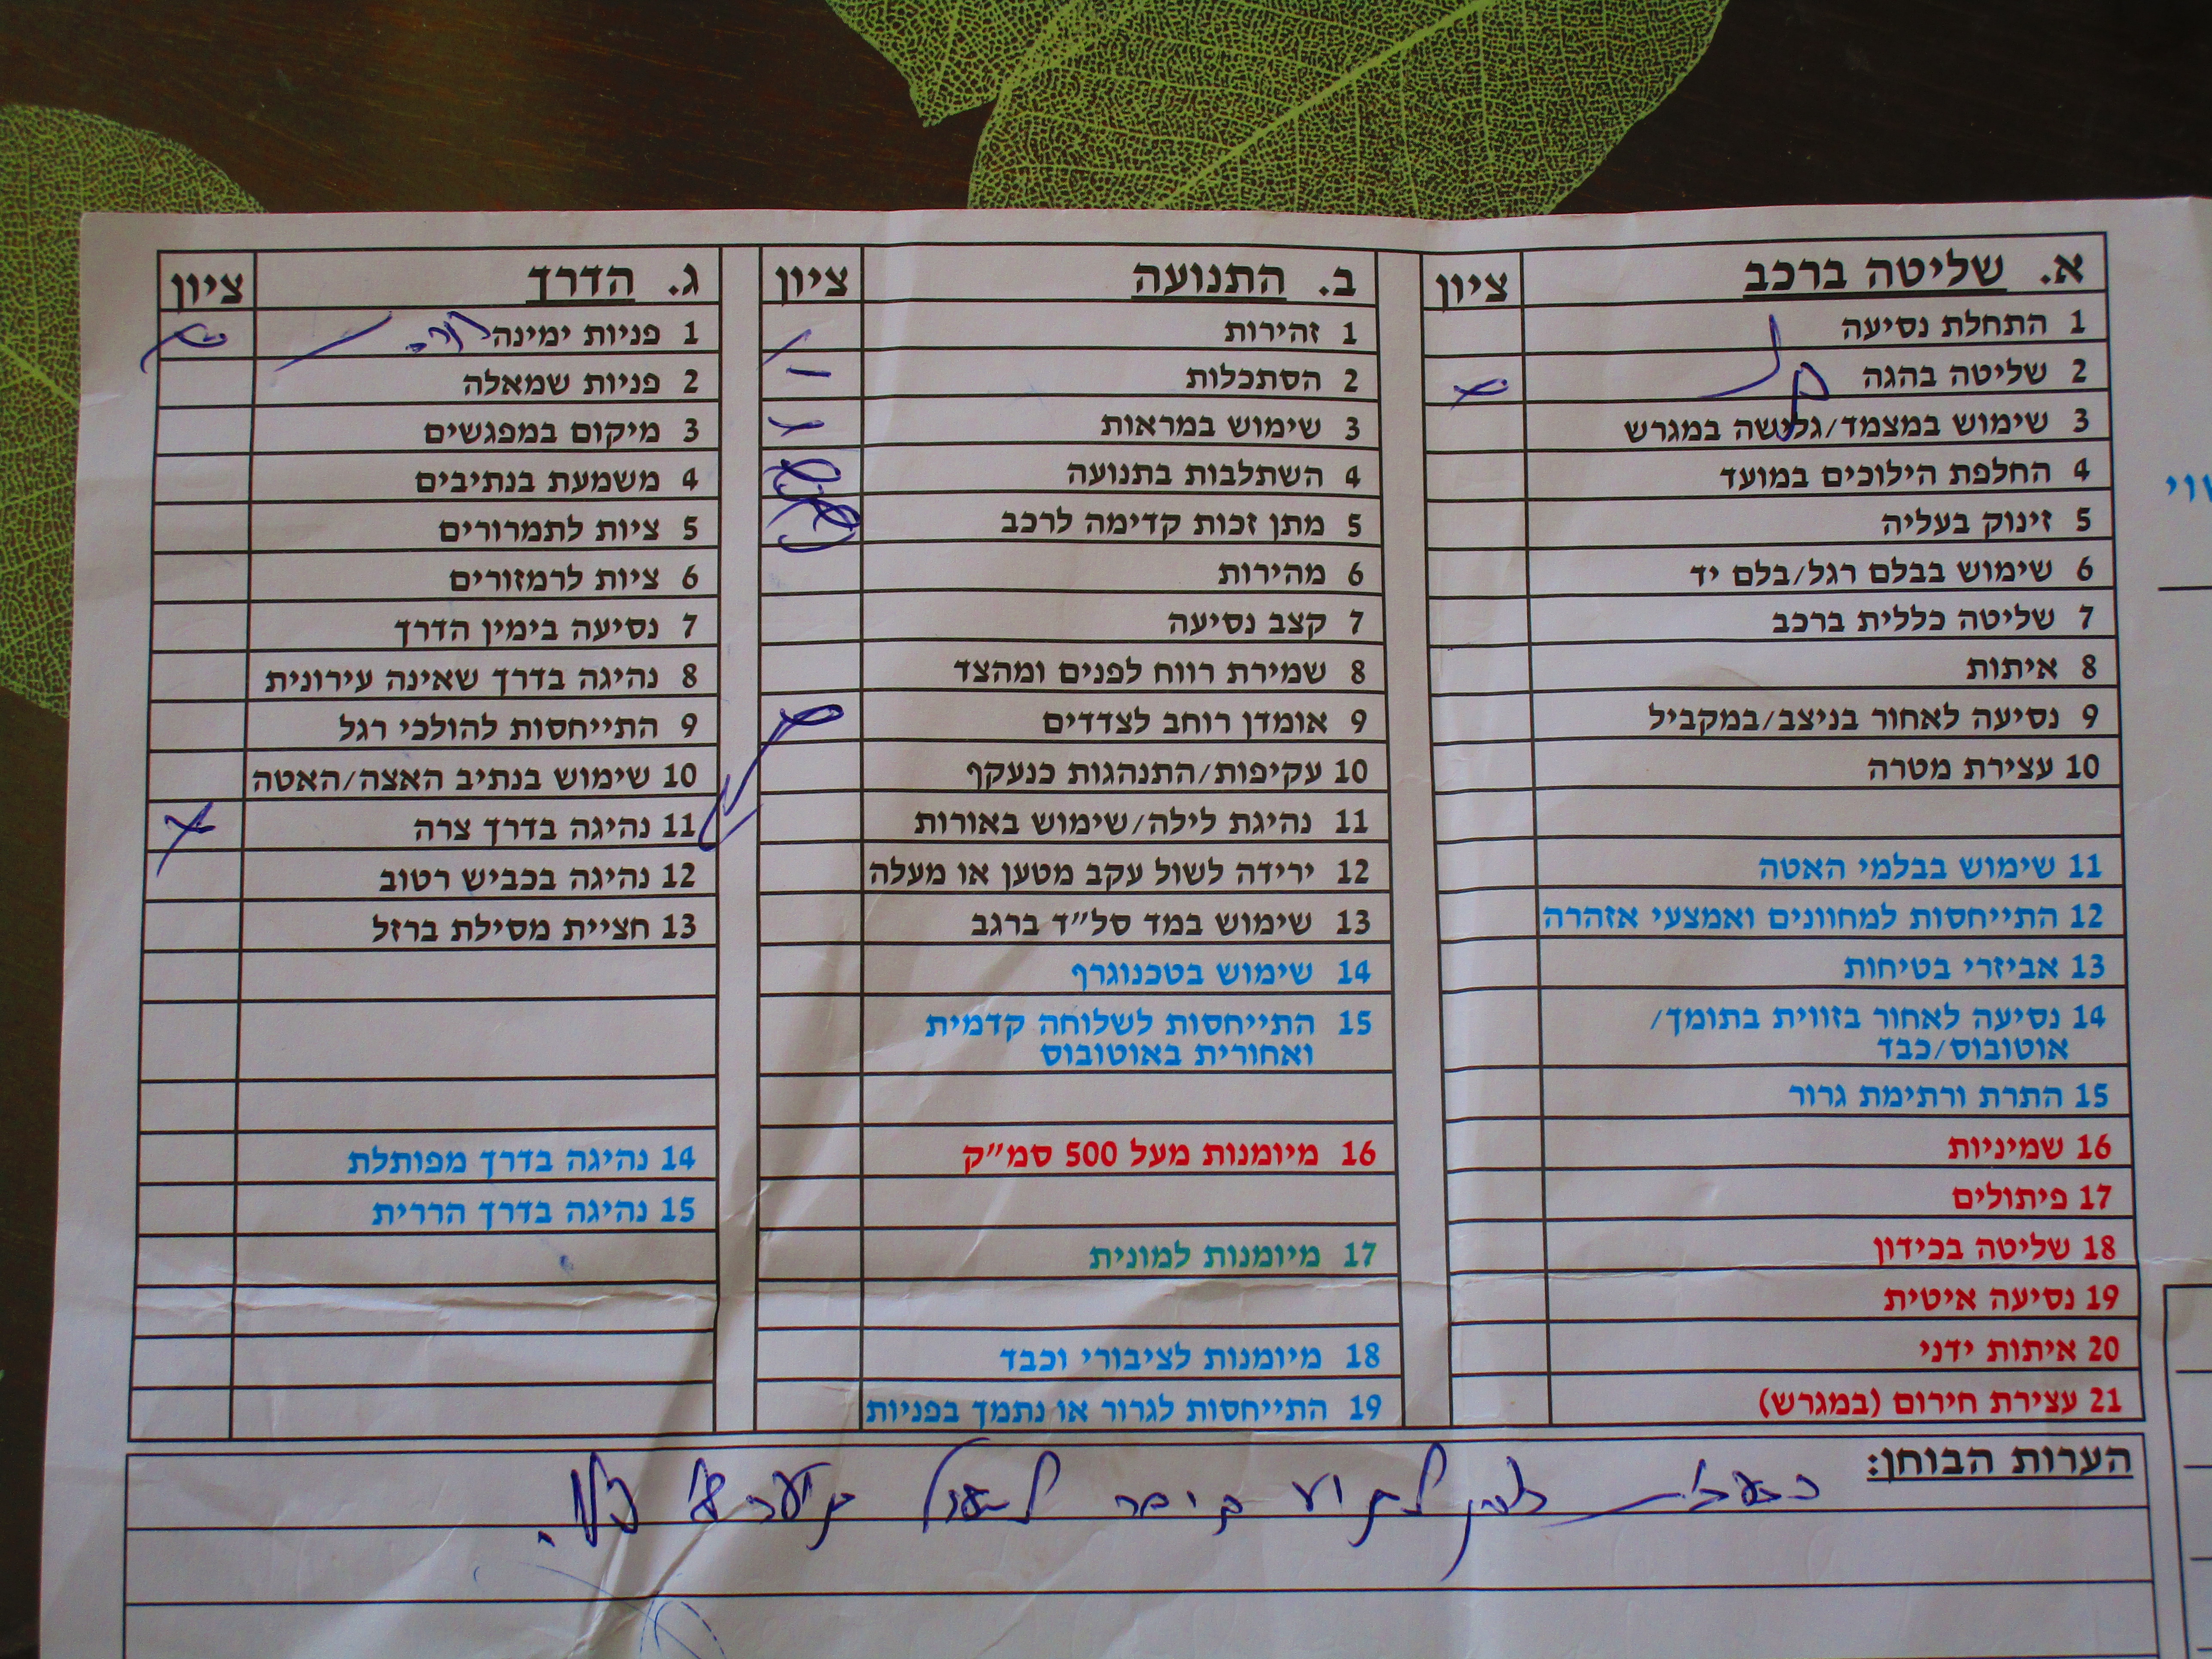 א. שליטה ברכב ציון
1 התחלת נסיעה
2 שליטה בהגה
3 שימוש במצמד/גלישה במגרש
4 החלפת הילוכים במועד
5 זינוק בעליה
6 שימוש בבלם רגל/בלם יד
7 שליטה כללית ברכב
8 איתות
9 נסיעה לאחור בניצב/במקביל
10 עצירת מטרה
11 שימוש בבלמי האטה
12 התייחסות למחוונים ואמצעי אזהרה
13 אביזרי בטיחות
14 נסיעה לאחור בזווית בתומך/
אוטובוס/כבד
15 התרת ורתימת גרור
16 שמיניות
17 פיתולים
18 שליטה בכידון
19 נסיעה איטית
20 איתות ידני
21 עצירת חירום (במגרש)
ב. התנועה ציון
1 זהירות
2 הסתכלות
3 שימוש במראות
4 השתלבות בתנועה
5 מתן זכות קדימה לרכב
6 מהירות
7 קצב נסיעה
8 שמירת רווח לפנים ומהצד
9 אומדן רוחב לצדדים
10 עקיפות/התנהגות כנעקף
11 נהיגת לילה/שימוש באורות
12 ירידה לשול עקב מטען או מעלה
13 שימוש במד סל״ד ברגב
14 שימוש בטכנוגרף
15 התייחסות לשלוחה קדמית
ואחורית באוטובוס
16 מיומנות מעל 500 סמ״ק
17 מיומנות למונית
18 מיומנות לציבורי וכבד
19 התייחסות לגרור או נתמך בפניות
ג. הדרך ציון
1 פניות ימינה
2 פניות שמאלה
3 מיקום במפגשים
4 משמעת בנתיבים
5 ציות לתמרורים
6 ציות לרמזורים
7 נסיעה בימין הדרך
8 נהיגה בדרך שאינה עירונית
9 התייחסות להולכי רגל
10 שימוש בנתיב האצה/האטה
11 נהיגה בדרך צרה
12 נהיגה בכביש רטוב
13 חציית מסילת ברזל
14 נהיגה בדרך מפותלת
15 נהיגה בדרך הררית
הערות הבוחן: